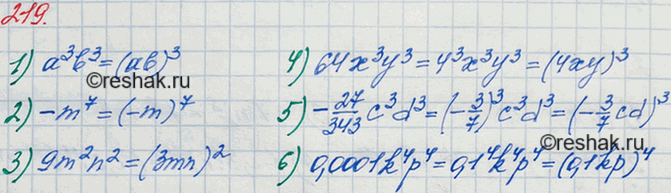 219.
1) a³b³=(ab)³
2) -m⁷=(-m)⁷
3) 9m²n²=(3mn)²
4) 64x³y³=4³x³y³=(4xy)³
5) -27/343 c³d³=(-3/7)³c³d³=(-3/7 cd)³
6) 0,0001k⁴p⁴=0,1⁴k⁴p⁴=(0,1kp)⁴
©reshak.ru